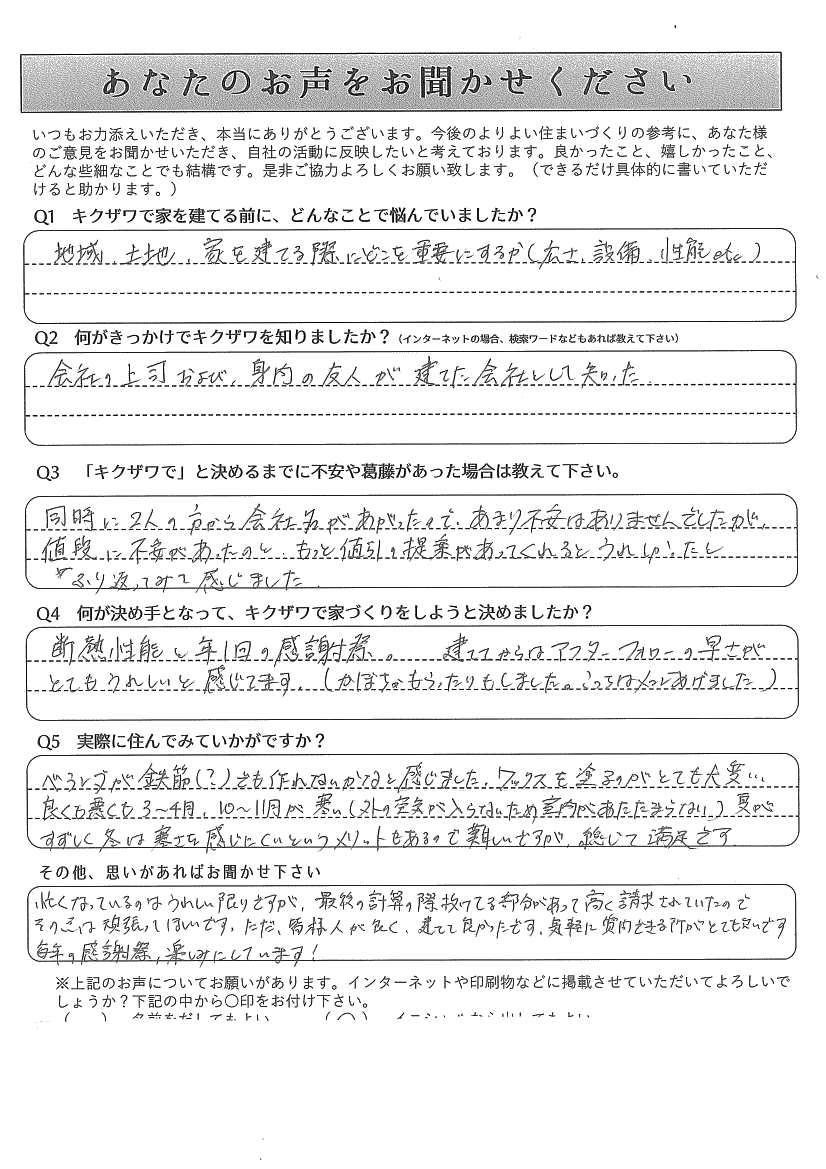 あなたのお声をお聞かせください
いつもお力添えいただき、本当にありがとうございます。今後のよりよい住まいづくりの参考に、あなた様
のご意見をお聞かせいただき、自社の活動に反映したいと考えております。良かったこと、嬉しかったこと、
どんな些細なことでも結構です。是非ご協力よろしくお願い致します。（できるだけ具体的に書いていただ
けると助かります。）
Q1　キクザワで家を建てる前に、どんなことで悩んでいましたか？
地域、土地、家を建てる際にどこを重要にするか（広さ、設備、性能etc）
Q2　何がきっかけでキクザワを知りましたか？（インターネットの場合、検索ワードなどもあれば教えて下さい）
会社の上司および、身内の友人が建てた会社として知った
Q3　「キクザワで」と決めるまでに不安や葛藤があった場合は教えて下さい。
同時に2人の方から会社名があがったので、あまり不安はありませんでしたが、
値段に不安があったのと、もっと値引の提案があってくれるとうれしかったし
ふり返ってみて感じました。
Q4　何が決め手となって、キクザワで家づくりをしようと決めましたか？
断熱性能と年1回の感謝祭。　建ててからはアフターフォローの早さが
とてもうれしいと感じてます。（かぼちゃもらったりもしました。こっちはメロンあげました）
Q5　実際に住んでみていかがですか？
べランダが鉄筋（？）でも作れないかなと感じました。ワックスを塗るのがとても大変…
良くも悪くも3〜4月、10〜11月が寒い（外の空気が入らないため室内があたたまらない）夏が
すずしく冬は寒さを感じにくいというメリットもあるので難しいですが、総じて満足です
その他、思いがあればお聞かせ下さい
忙しくなっているのはうれしい限りですが、最後の計算の際抜けてる部分があって高く請求されていたので
その点は頑張ってほしいです。ただ、皆様人が良く、建てて良かったです。気軽に質問できる所がとても良いです
毎年の感謝祭、楽しみにしています！
※上記のお声についてお願いがあります。インターネットや印刷物などに掲載させていただいてよろしいで
しょうか？下記の中から〇印をお付け下さい。
（　　）　名前をだしてもよい　　（〇）　イニシャルなら出してもよい